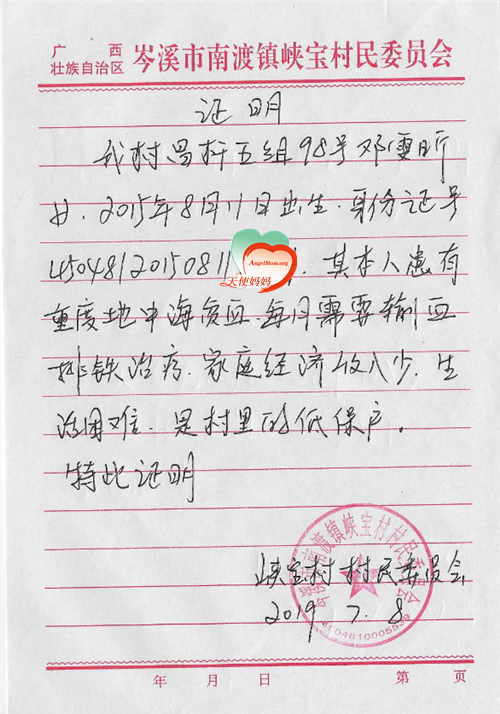 广西
壮族自治区 岑溪市南渡镇峡宝村民委员会
证明
我村昌杆五组98号邓雯昕
女，2015年8月11日出生，身份证号
45048120150811，其本人患有
AngelMom.org
天使妈妈
重度地中海贫血，每月需要输血
排铁治疗，家庭经济收入少，生
活困难，是村里的低保户。
特此证明
岑溪市南渡镇峡宝村村民委员会
峡宝村村民委员会
2019.7.8
年 月 日 第 页